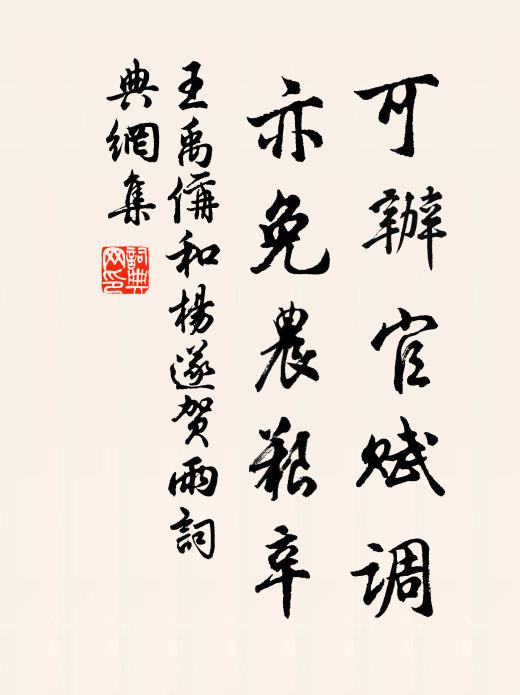 可辦官赋调
亦免農艱辛
王禹偁和楊遂贺雨詞
典網集
詞典
网印